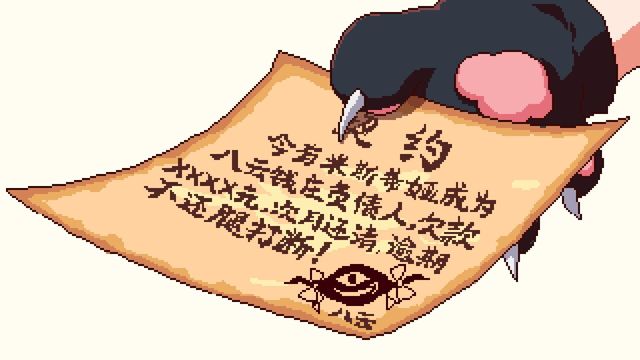 契 约
今有米斯蒂娅成为
八云钱庄负债人，欠款
xxxx元，次月还清，逾期
不还腿打断！
八云